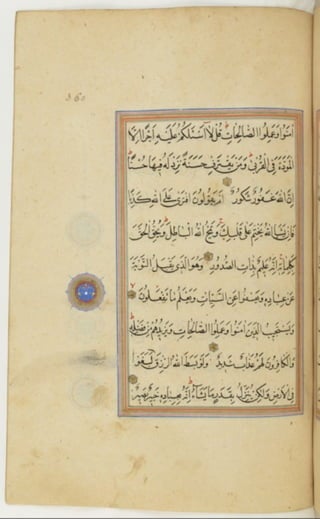 امنوا وعملوا الصالحات قل لا اسئلكم عليه اجرا الا
المودة في القربى ومن يقترف حسنة نزد له فيها حسنا
ان الله غفور شكور ام يقولون افترى على الله كذبا
فان يشا الله يختم على قلبك ويمح الله الباطل ويحق الحق
بكلماته انه عليم بذات الصدور وهو الذي يقبل التوبة
عن عباده ويعفوا عن السيئات ويعلم ما تفعلون
ويستجيب الذين امنوا وعملوا الصالحات ويزيدهم من فضله
والكافرون لهم عذاب شديد ولو بسط الله الرزق لبغوا
في الارض ولكن ينزل بقدر ما يشاء انه بعباده خبير بصير